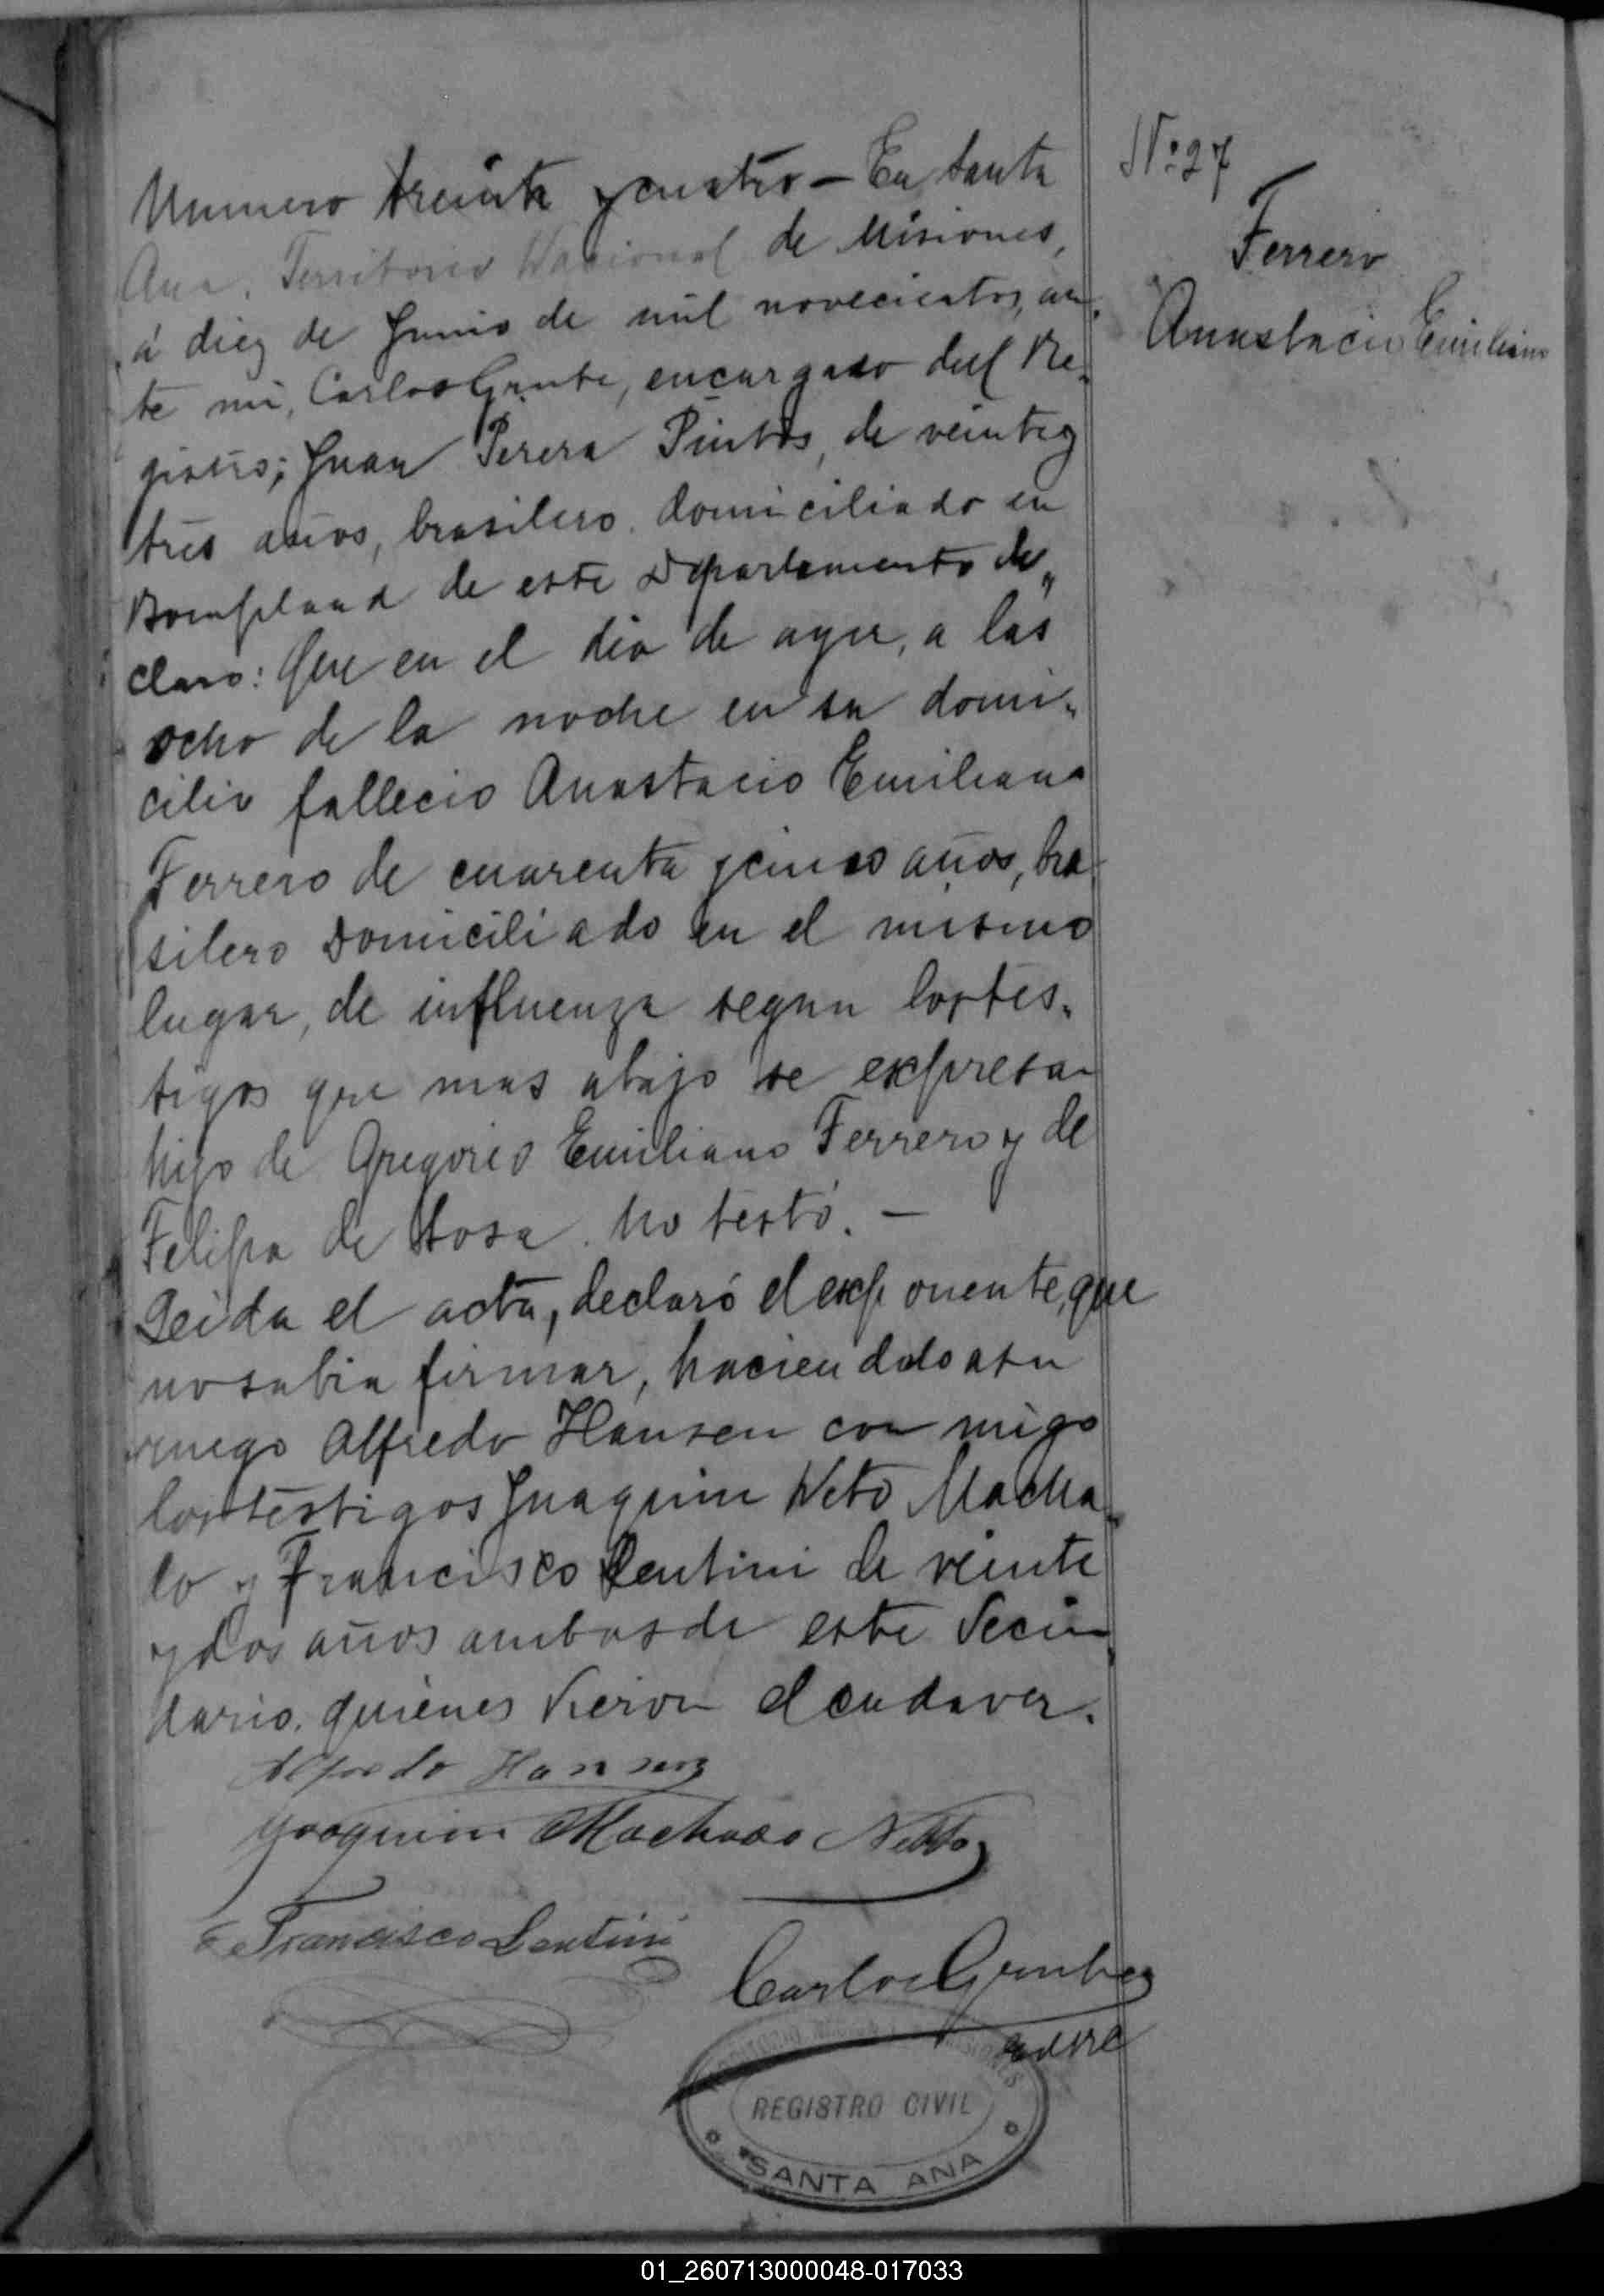 Numero treinta y cuatro — En Santa
Ana, Territorio Nacional de Misiones,
á diez de Junio de mil novecientos, an-
te mi, Carlos Grube, encargado del Re-
gistro; Juan Perera Pintos, de veinte y
tres años, brasilero, domiciliado en
Bompland de este Departamento de-
claro: Que en el dia de ayer, a las
ocho de la noche en su domi-
cilio fallecio Anastacio Emiliano
Ferrero de cuarenta y cinco años, bra-
silero domiciliado en el mismo
lugar, de influenza segun los tes-
tigos que mas abajo se expresan
hijo de Gregorio Emiliano Ferrero y de
Felipa de Sosa. No testó. —
Leida el acta, declaró el exponente, que
no sabia firmar, haciendolo a su
ruego Alfredo Hansen con migo
los testigos Juaquin Neto Macha-
do y Francisco Lentini de veinte
y dos años ambos de este Vecin
dario. quienes vieron el cadaver.
Alfredo Hansen
Joaquim Machado Netto
Francisco Lentini
Carlos Grube
REGISTRO CIVIL
SANTA ANA
Nº 27
Ferrero
Anastacio Emiliano
01_260713000048-017033